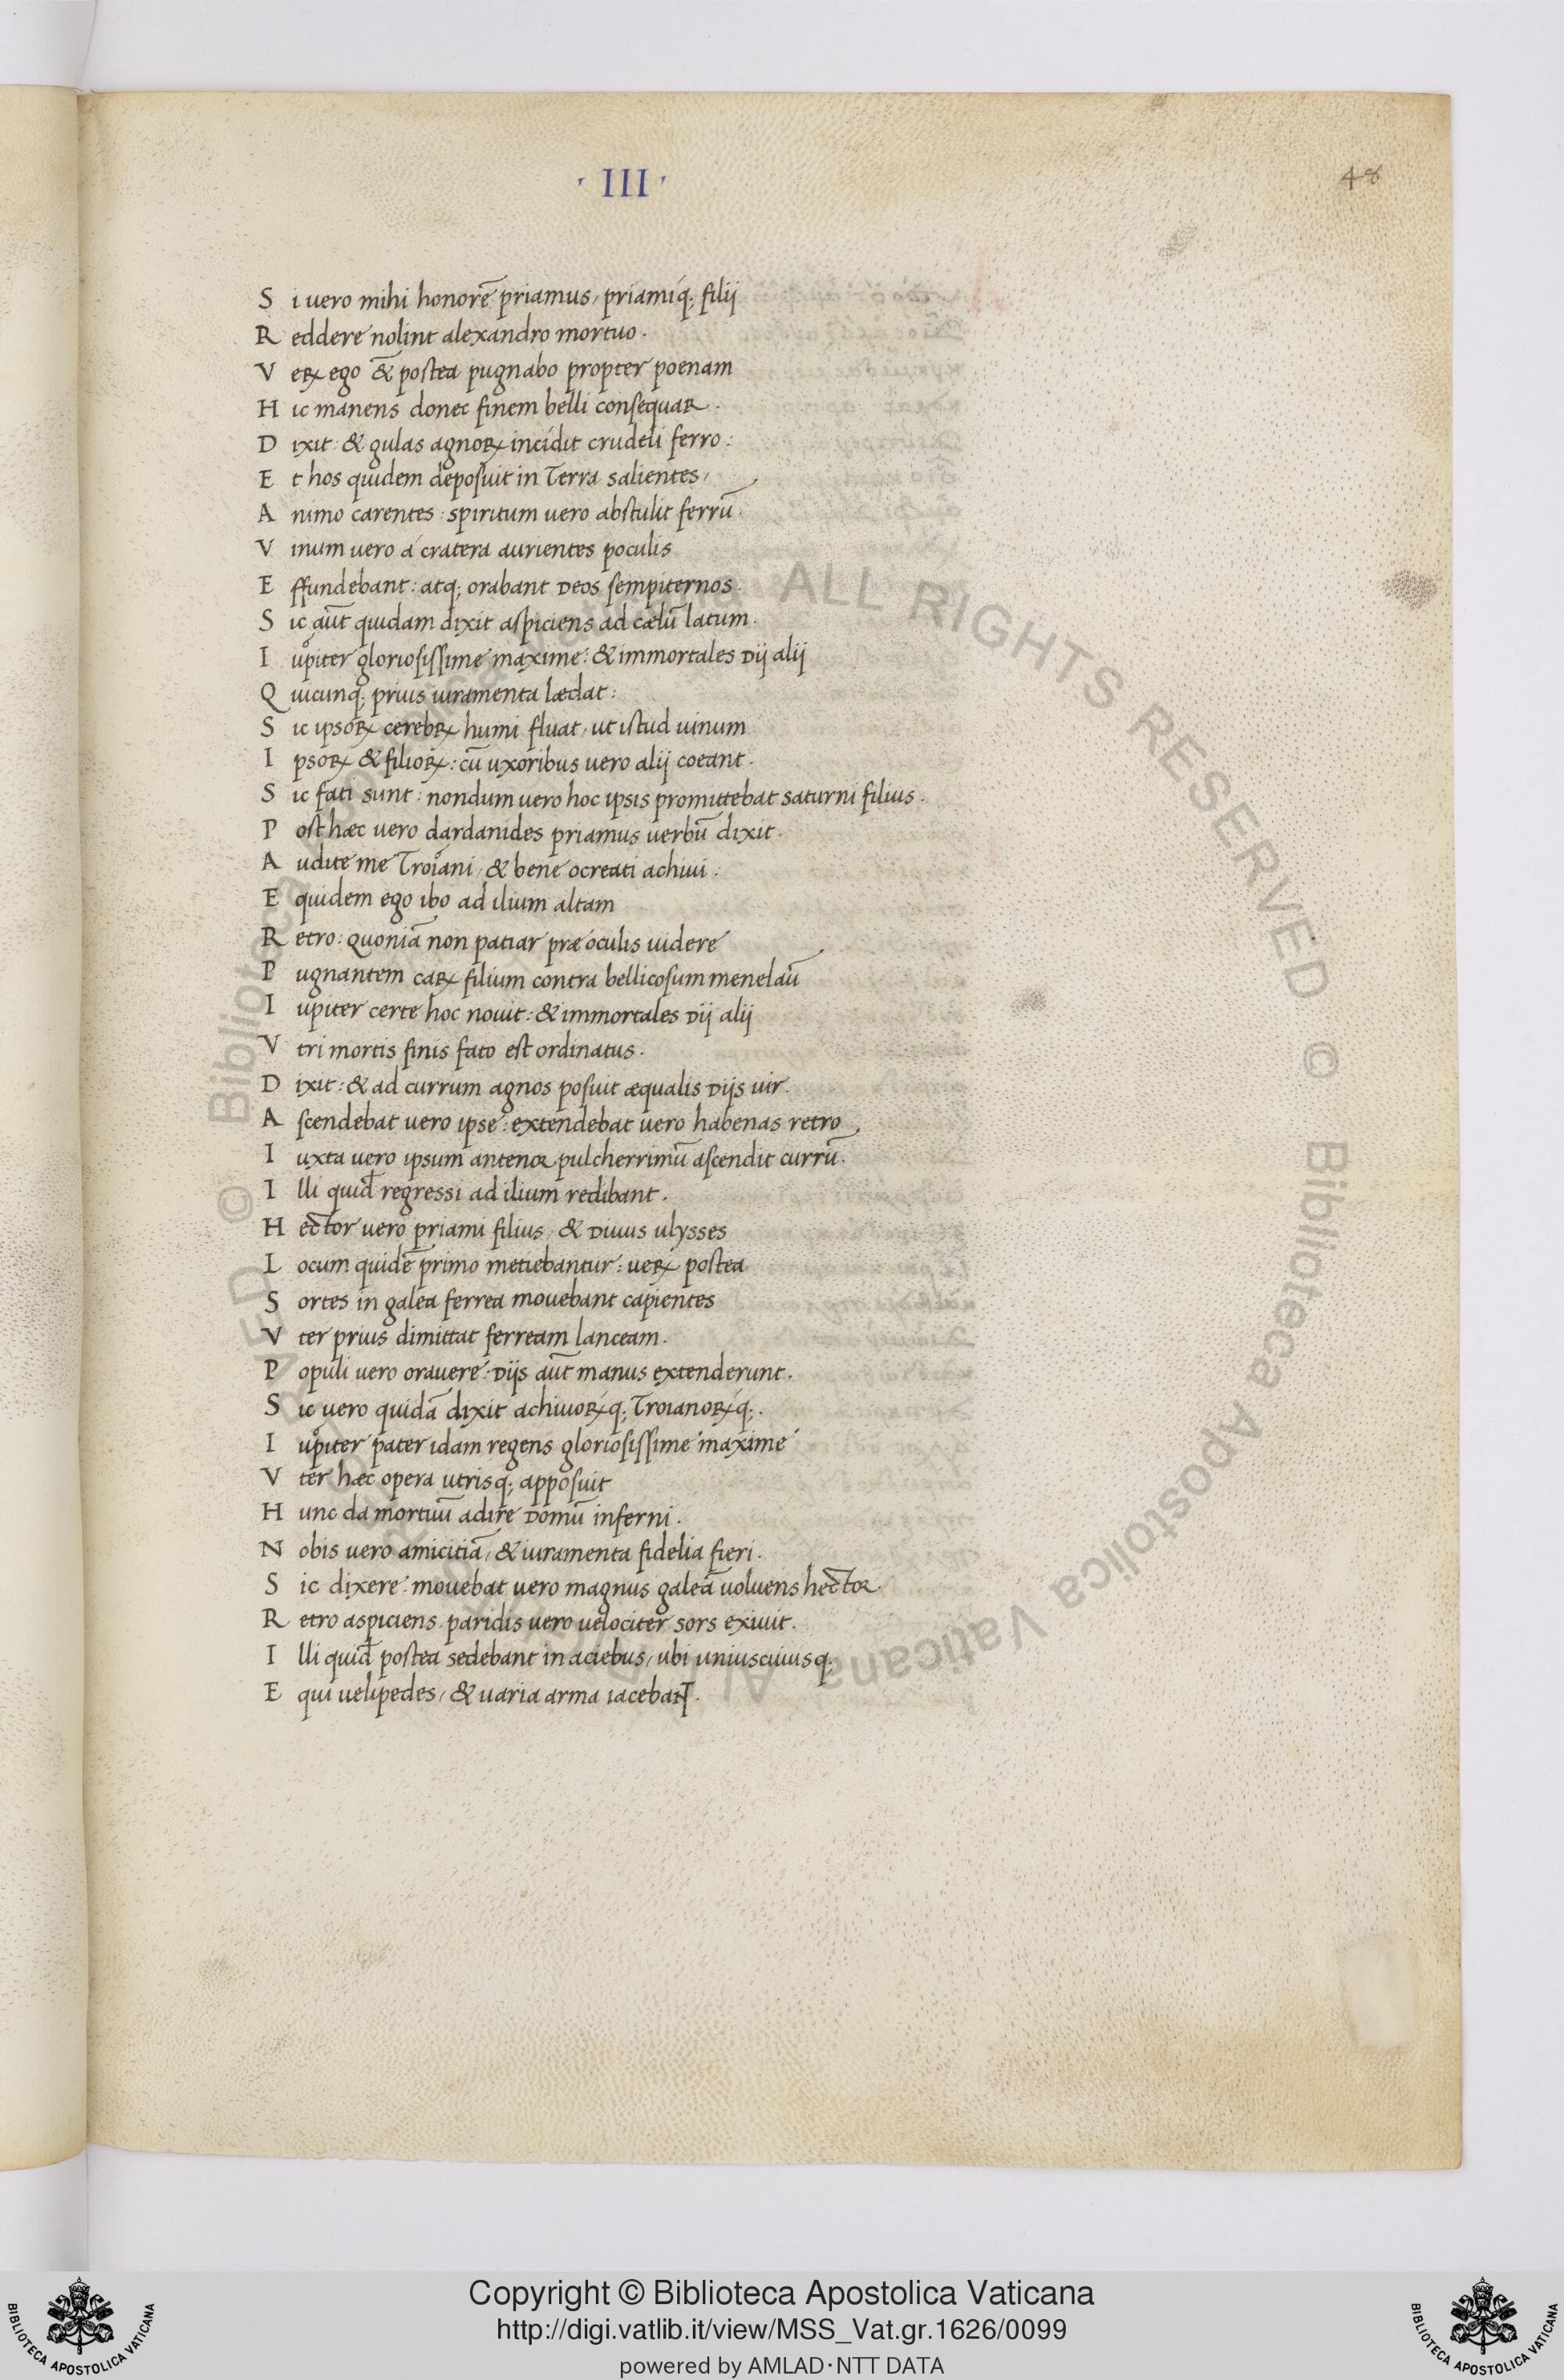 · III ·
48
S i uero mihi honorē priamus, priamiq́; filij
R eddere nolint alexandro mortuo.
V eꝝ ego & postea pugnabo propter poenam
H ic manens donec finem belli consequar.
D ixit & gulas agnoꝝ incidit crudeli ferro:
E t hos quidem deposuit in Terra salientes,
A nimo carentes: spiritum uero abstulit ferrū.
V inum uero a cratera aurientes poculis
E ffundebant: atq; orabant Deos sempiternos.
S ic aūt quidam dixit aspiciens ad cælū latum.
I upiter gloriosissime maxime: & immortales Dij alij
Q uicunq; prius iuramenta lædat:
S ic ipsoꝝ cerebꝝ humi fluat, ut istud uinum
I psoꝝ & filioꝝ: cū uxoribus uero alij coeant.
S ic fati sunt: nondum uero hoc ipsis promittebat saturni filius.
P ost hæc uero dardanides priamus uerbū dixit.
A udite me Troiani, & bene ocreati achiui:
E quidem ego ibo ad ilium altam
R etro: quoniā non patiar præ oculis uidere
P ugnantem caꝝ filium contra bellicosum menelaū
I upiter certe hoc nouit: & immortales Dij alij
V tri mortis finis fato est ordinatus.
D ixit: & ad currum agnos posuit æqualis Dijs uir.
A scendebat uero ipse: extendebat uero habenas retro
I uxta uero ipsum antenor pulcherrimū ascendit currū.
I lli quid̄ regressi ad ilium redibant.
H ector uero priami filius, & Diuus ulysses
L ocum quidē primo metiebantur: ueꝝ postea
S ortes in galea ferrea mouebant capientes
V ter prius dimittat ferream lanceam.
P opuli uero orauere: Dijs aūt manus extenderunt.
S ic uero quidā dixit achiuoꝝq́; Troianoꝝq́;.
I upiter pater idam regens gloriosissime maxime
V ter hæc opera utrisq; apposuit
H unc da mortuū adire Domū inferni.
N obis uero amicitiā, & iuramenta fidelia fieri.
S ic dixere: mouebat uero magnus galeā uoluens hector
R etro aspiciens. paridis uero uelociter sors exiuit.
I lli quid̄ postea sedebant in aciebus, ubi uniuscuiusq;
E qui uelipedes, & uaria arma iacebanT.
© Biblioteca Apostolica Vaticana ALL RIGHTS RESERVED © Biblioteca Apostolica Vaticana
Copyright © Biblioteca Apostolica Vaticana
http://digi.vatlib.it/view/MSS_Vat.gr.1626/0099
powered by AMLAD·NTT DATA
BIBLIOTECA APOSTOLICA VATICANA
BIBLIOTECA APOSTOLICA VATICANA